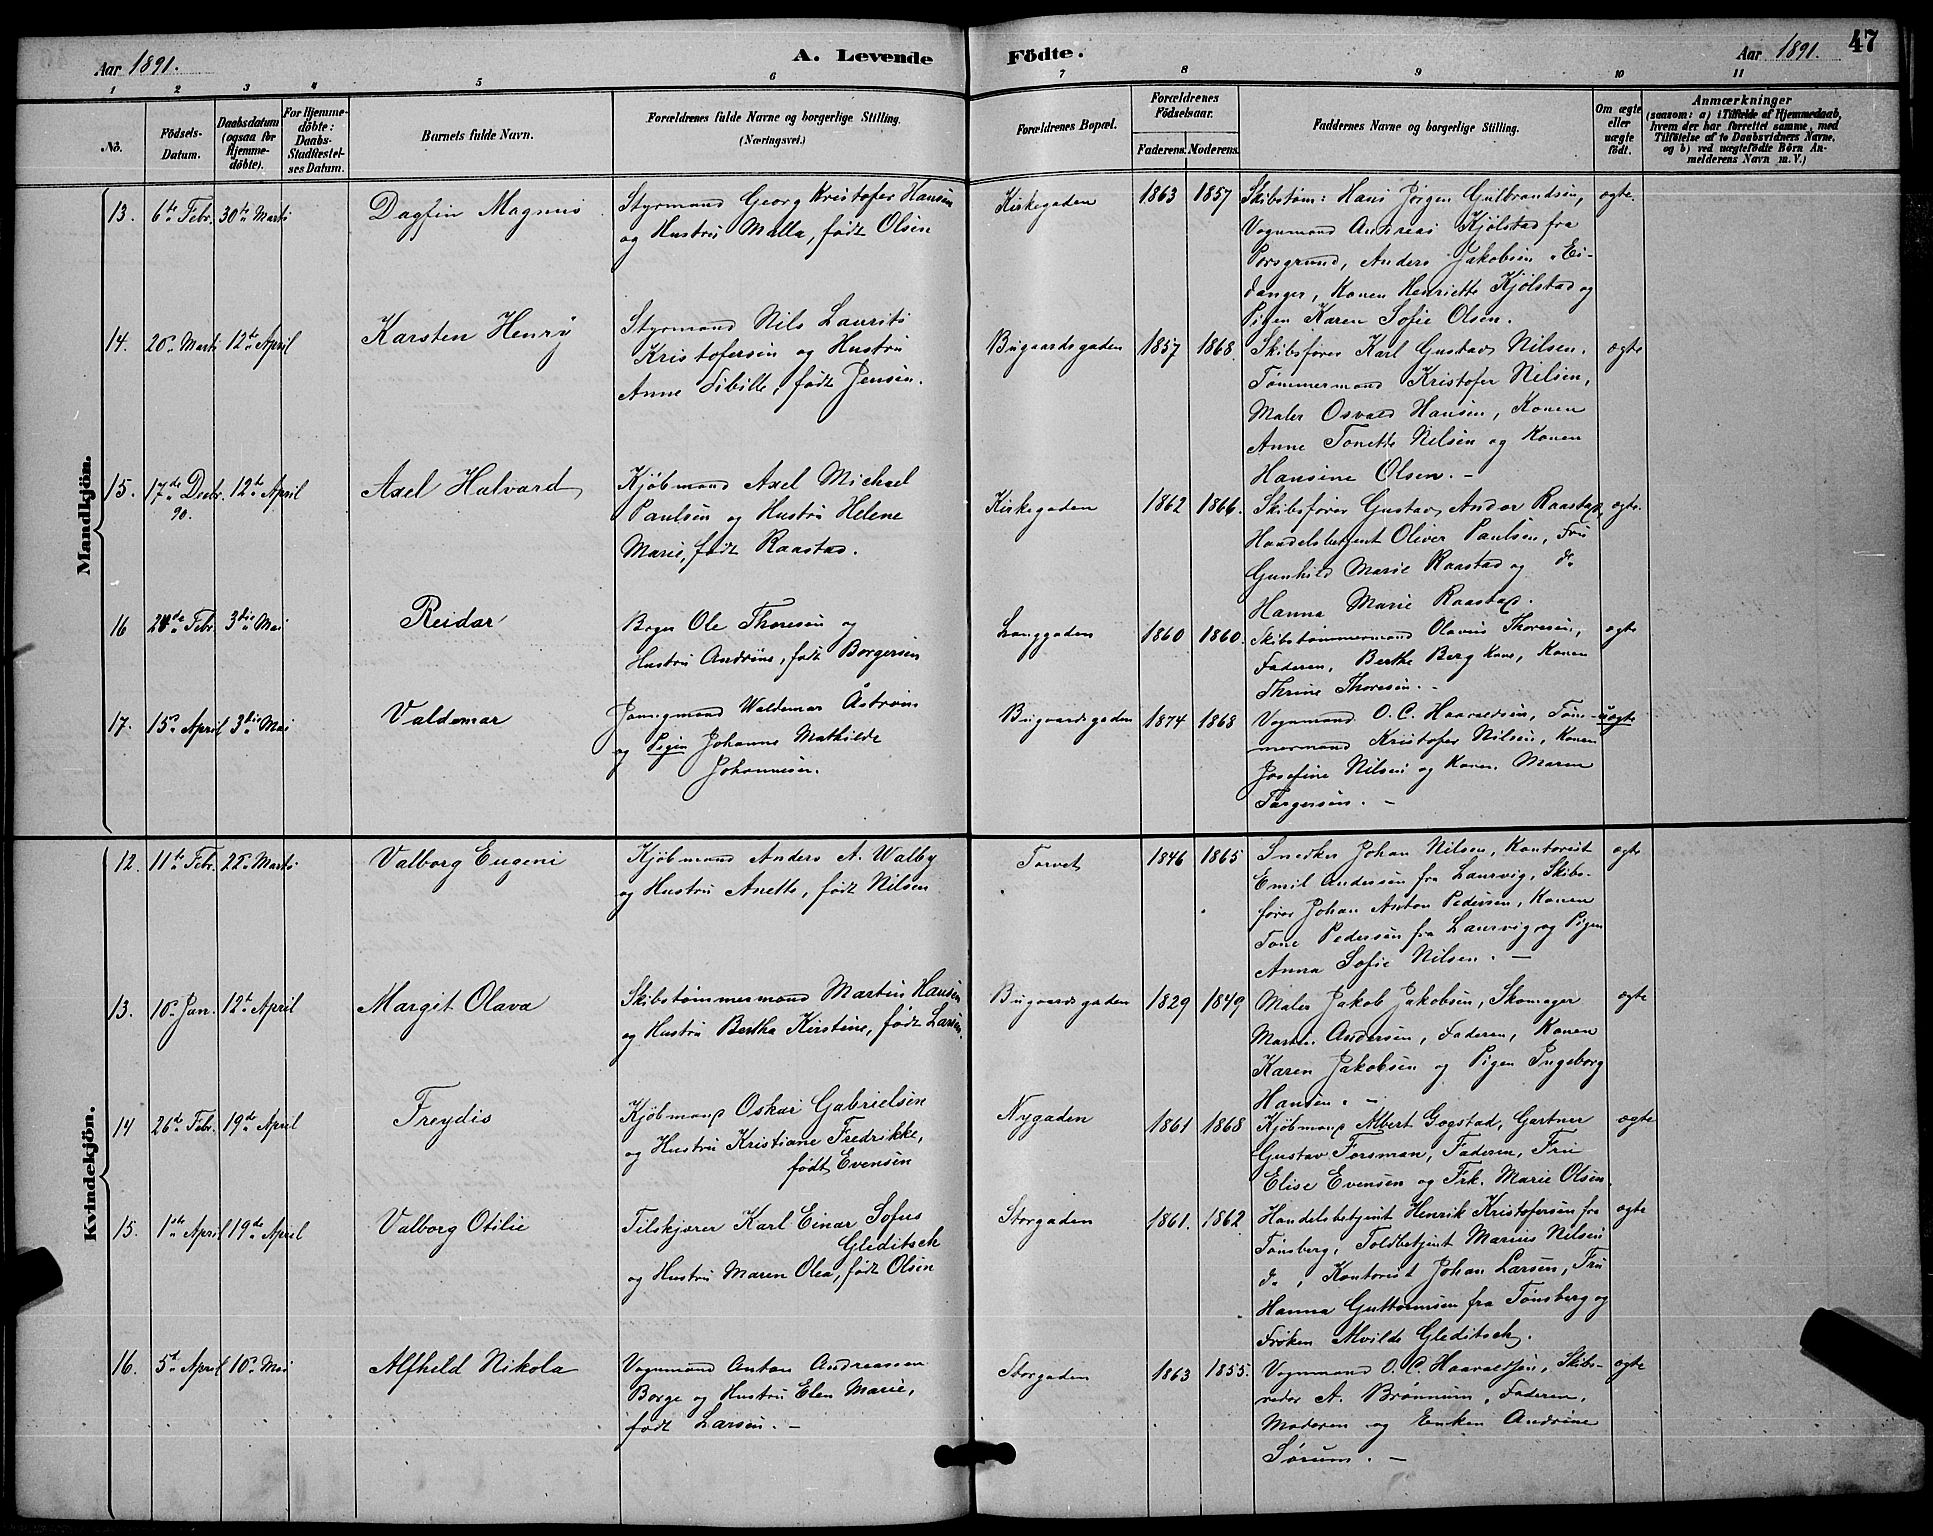 47
Aar 1891. A. Levende Födte. Aar 1891.
1 2 3 4 5 6 7 8 9 10 11
No. Födsels-Datum. Daabsdatum (ogsaa for Hjemmedöbte). For Hjemmedöbte: Daabs-Stadfestelses Datum. Barnets fulde Navn. Forældrenes fulde Navne og borgerlige Stilling. (Næringsvei.) Forældrenes Bopæl. Forældrenes Födselsaar. Faderens. Moderens. Faddernes Navne og borgerlige Stilling. Om ægte eller uægte födt. Anmærkninger
(saasom: a) i Tilfælde af Hjemmedaab,
hvem der har forrettet samme, med
Tilföielse af to Daabsvidners Navne,
og b) ved uægtefödte Börn An-
melderens Navn m. V.)
Mandkjön.
13. 6te Febr. 30te Marts Dagfin Magnus Styrmand Georg Kristofer Hansen
og Hustru Malla, født Olsen
Kirkegaden 1863 1857 Skibstøm: Hans Jørgen Gulbrandsen, ægte.
Vognmand Andreas Kjølstad fra
Porsgrund, Anders Jakobsen Ei-
danger, Konen Henriette Kjølstad og
Pigen Karen Sofie Olsen.
14. 20de Marts 12te April Karsten Henry Styrmand Nils Laurits
Kristofersen og Hustru
Anne Sibille, født Jensen.
Bugaardsgaden 1857 1868. Skibsfører Karl Gustav Nilsen. ægte
Tømmermand Kristofer Nilsen,
Maler Osvald Hansen, Konen
Anne Tonette Nilsen og Konen
Hansine Olsen. -
15. 17de Decbr. 90. 12te April Axel Halvard Kjøbmand Axel Michael
Paulsen og Hustru Helene
Marie, født Raastad.
Kirkegaden 1862 1866. Skibsfører Gustav Andor Raastad, ægte.
Handelsbetjent Oliver Paulsen, Fru
Gunhild Marie Raastad og do
Hanna Marie Raastad.
16 Febr. 3die Mai Reidar Bager Ole Thoresen og
Hustru Andrine, født Borgersen
Langgaden 1860 1860. Skibstømmermand Olavus Thoresen, ægte
Faderen, Berthe Berg Kone, Konen
Thrine Thoresen. -
17. 15de April 3die Mai Valdemar Joungmand Waldemar Åström
og Pigen Johanne Mathilde
Johannesen.
Bugaardsgaden 1874 1868 Vognmand O. C. Haavaldsen, Tøm- uægte
mermand Kristofer Nilsen, Konen
Josefine Nilsen og Konen Maren
Torgersen. -
Kvindekjön.
12. 11te Febr. 22de Marts Valborg Eugeni Kjøbmand Anders A. Walby
og Hustru Anette, født Nilsen
Torvet 1846 1865 Snedker Johan Nilsen, Kontorist ægte
Emil Andersen fra Laurvig, Skibs-
fører Johan Anton Pedersen, Konen
Tone Pedersen fra Laurvig og Pigen
Anna Sofie Nilsen. -
13. 10de Jan. 12te April Margit Olava Skibstømmermand Martin Hansen
og Hustru Bertha Kirstine, født Larsen.
Bugaardsgaden 1829 1849 Maler Jakob Jakobsen, Skomager ægte
Martin Andersen, Faderen, Konen
Karen Jakobsen og Pigen Ingeborg
Hansen. -
14 26de Febr. 19de April Freydis Kjøbmand Oskar Gabrielsen
og Hustru Kristiane Fredrikke,
født Evensen
Nygaden 1861 1868 Kjøbmand Albert Gogstad, Gartner ægte
Gustav Forsman, Faderen, Fru
Elise Evensen og Frk. Marie Olsen.
15. 1ste April 19de April Valborg Otilie Tilskjærer Karl Einar Sofus
Gleditsch
og Hustru Maren Olea, født Olsen
Storgaden 1861. 1862 Handelsbetjent Henrik Kristofersen fra ægte
Tønsberg, Toldbetjent Marius Nilsen
do, Kontorist Johan Larsen, Fru
Hanna Guttormsen fra Tønsberg og
Frøken Alvilde Gleditsch.
16. 5te April 10de Mai Alfheld Nikola Vognmand Anton Andreassen
Borge og Hustru Elen Marie,
født Larsen. -
Storgaden 1863 1855. Vognmand O. C. Haavaldsen, Skibs- ægte
reder A. Brønnum, Faderen,
Moderen og Enken Andrine
Sørum. -